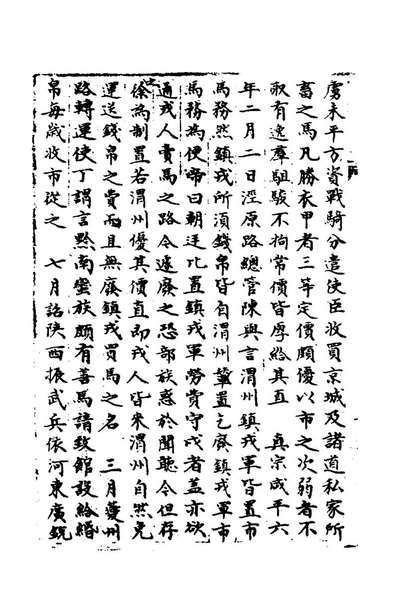 虜未平方資戰騎分遣使臣收買京城及諸道私家所
畜之馬凡勝衣甲者三等定價頗優以市之次弱者不
取有逸羣駔駿不拘常價皆厚給其直　真宗咸平六
年二月二日涇原路總管陳興言渭州鎮戎軍皆置市
馬務然鎮戎所須錢帛皆自渭州輦置乞廢鎮戎軍市
馬務為便帝曰朝廷比置鎮戎軍勞費守戍者蓋亦欲
通戎人賣馬之路今遽廢之恐部族惑於聞聽今但存
徐為制置若渭州優其價直即戎人皆來渭州自然免
運送錢帛之費而且無廢鎮戎買馬之名　三月夔州
路轉運使丁謂言黔南蠻族頗有善馬請致館設給緡
帛每歲收市從之　七月詔陝西振武兵依河東廣銳